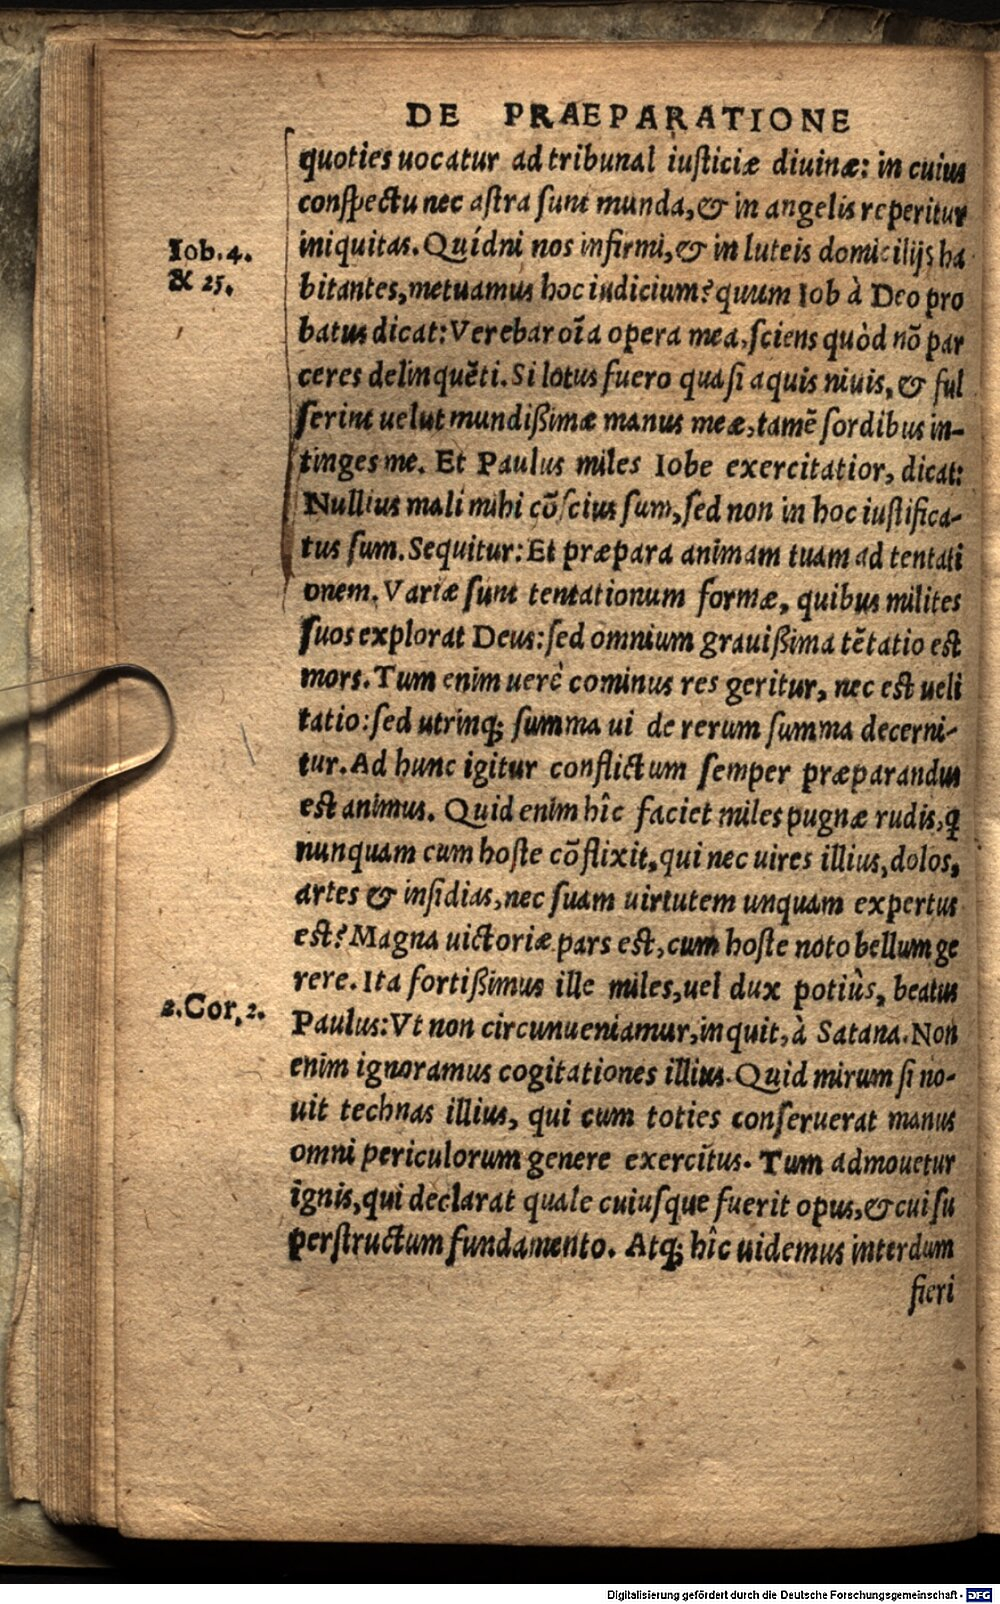 DE PRAEPARATIONE
quoties uocatur ad tribunal iusticiæ diuinæ: in cuius
conspectu nec astra sunt munda, & in angelis reperitur
iniquitas. Quídni nos infirmi, & in luteis domicilijs ha
Iob. 4.
& 25.
bitantes, metuamus hoc iudicium? quum Iob à Deo pro
batus dicat: Verebar oīa opera mea, sciens quòd nō par
ceres delinquēti. Si lotus fuero quasi aquis niuis, & ful
serint uelut mundißimæ manus meæ, tamē sordibus in-
tinges me. Et Paulus miles Iobe exercitatior, dicat:
Nullius mali mihi cōscius sum, sed non in hoc iustifica-
tus sum. Sequitur: Et præpara animam tuam ad tentati
onem. Variæ sunt tentationum formæ, quibus milites
suos explorat Deus: sed omnium grauißima tētatio est
mors. Tum enim uerè cominus res geritur, nec est ueli
tatio: sed utrinq; summa ui de rerum summa decerni-
tur. Ad hunc igitur conflictum semper præparandus
est animus. Quid enim hîc faciet miles pugnæ rudis, q
nunquam cum hoste cōflixit, qui nec uires illius, dolos,
artes & insidias, nec suam uirtutem unquam expertus
est? Magna uictoriæ pars est, cum hoste noto bellum ge
rere. Ita fortißimus ille miles, uel dux potiùs, beatus
2. Cor. 2.
Paulus: Vt non circunueniamur, inquit, à Satana. Non
enim ignoramus cogitationes illius. Quid mirum si no-
uit technas illius, qui cum toties conseruerat manus
omni periculorum genere exercitus. Tum admouetur
ignis, qui declarat quale cuiusque fuerit opus, & cui su
perstructum fundamento. Atq; hîc uidemus interdum
fieri
Digitalisierung gefördert durch die Deutsche Forschungsgemeinschaft - DFG